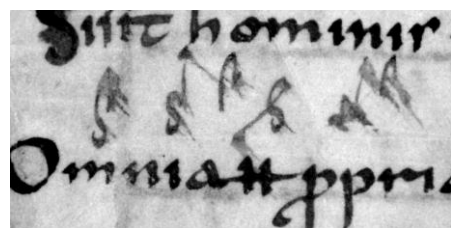 Sint hominis
Omnia tt ppria